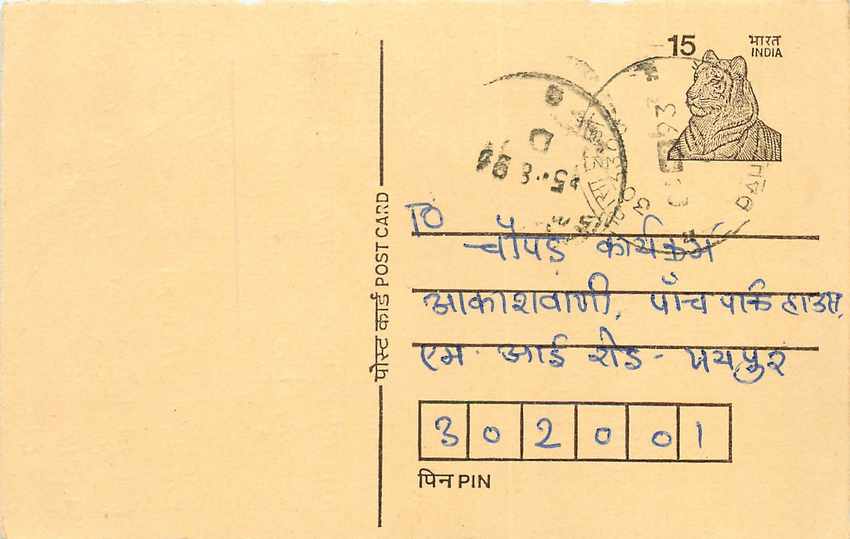 15
भारत
INDIA
5.8.94
93
पोस्ट कार्ड POST CARD
TO
चौपड़ कार्यक्रम
आकाशवाणी, पाँच पार्क हाउस,
एम. आई रोड - जयपुर
302001
पिन PIN